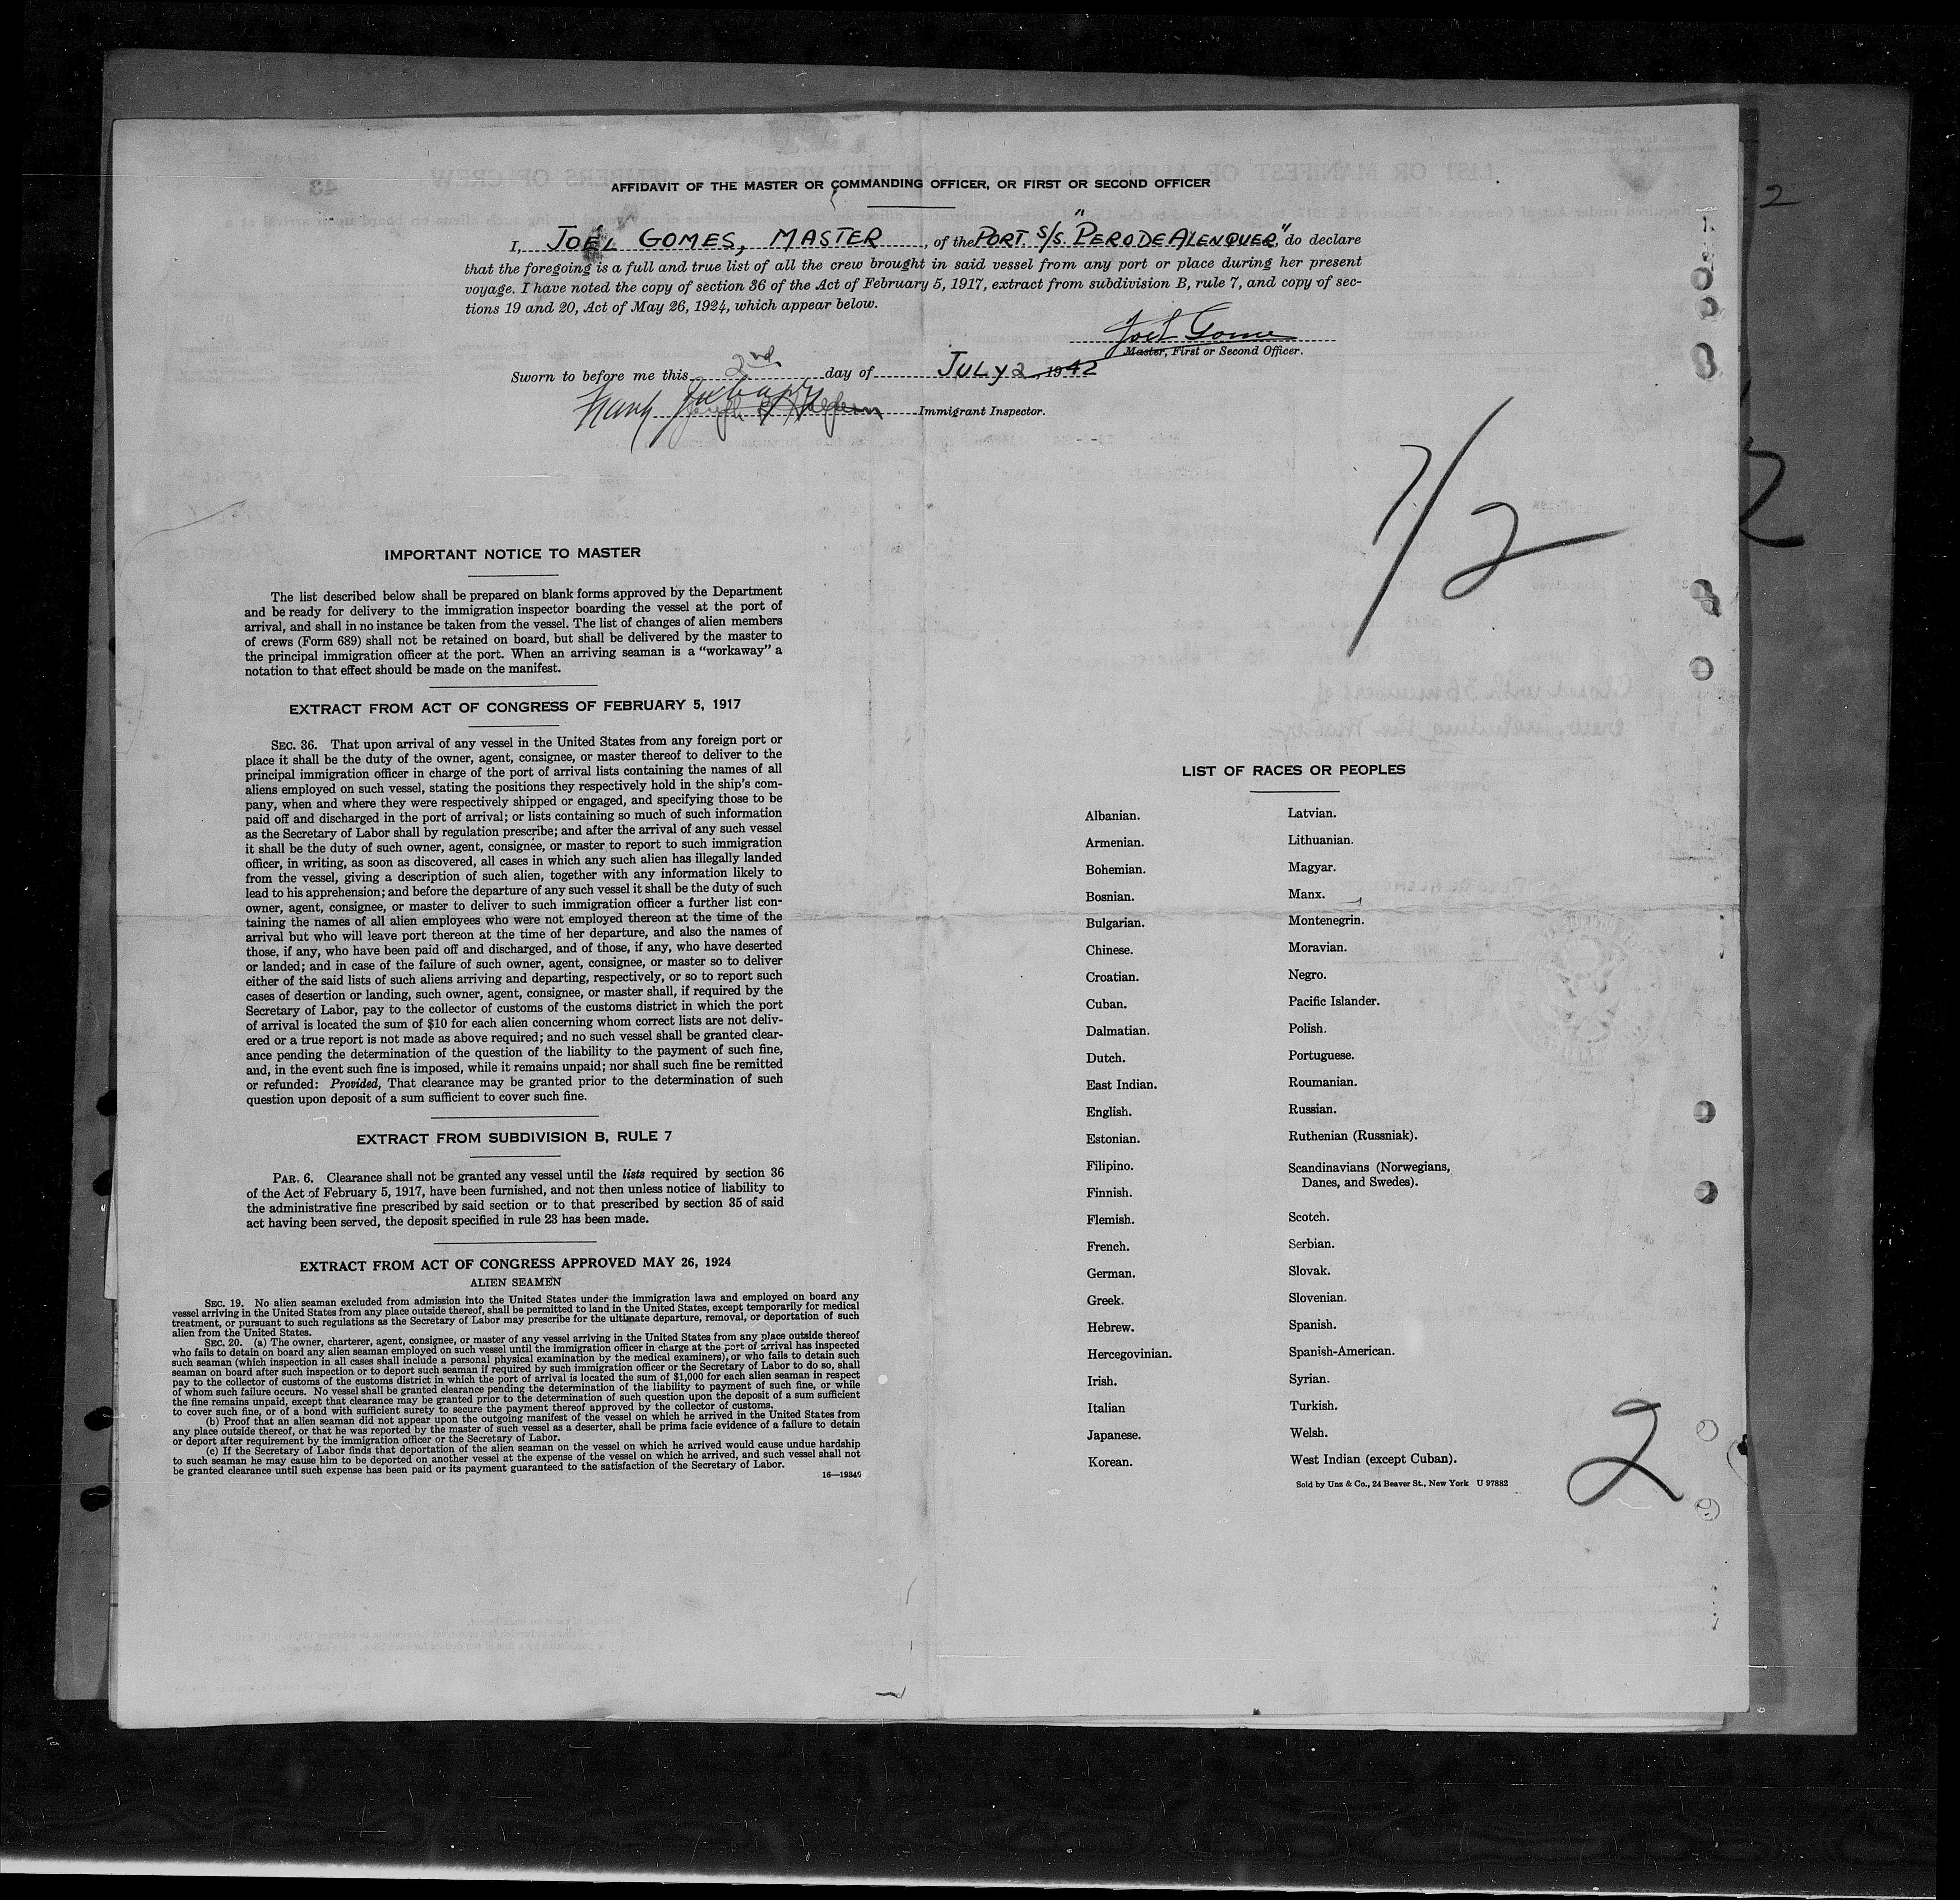 AFFIDAVIT OF THE MASTER OR COMMANDING OFFICER, OR FIRST OR SECOND OFFICER
I, JOEL GOMES, MASTER, of the PORT. S/S. "PERO DE ALENQUER," do declare
that the foregoing is a full and true list of all the crew brought in said vessel from any port or place during her present
voyage. I have noted the copy of section 36 of the Act of February 5, 1917, extract from subdivision B, rule 7, and copy of sec-
tions 19 and 20, Act of May 26, 1924, which appear below.
Joel Gomes
Master, First or Second Officer.
Sworn to before me this 2nd day of JULY 2, 1942
Frank
Immigrant Inspector.
7/2
2
2
IMPORTANT NOTICE TO MASTER
The list described below shall be prepared on blank forms approved by the Department
and be ready for delivery to the immigration inspector boarding the vessel at the port of
arrival, and shall in no instance be taken from the vessel. The list of changes of alien members
of crews (Form 689) shall not be retained on board, but shall be delivered by the master to
the principal immigration officer at the port. When an arriving seaman is a "workaway" a
notation to that effect should be made on the manifest.
EXTRACT FROM ACT OF CONGRESS OF FEBRUARY 5, 1917
SEC. 36. That upon arrival of any vessel in the United States from any foreign port or
place it shall be the duty of the owner, agent, consignee, or master thereof to deliver to the
principal immigration officer in charge of the port of arrival lists containing the names of all
aliens employed on such vessel, stating the positions they respectively hold in the ship's com-
pany, when and where they were respectively shipped or engaged, and specifying those to be
paid off and discharged in the port of arrival; or lists containing so much of such information
as the Secretary of Labor shall by regulation prescribe; and after the arrival of any such vessel
it shall be the duty of such owner, agent, consignee, or master to report to such immigration
officer, in writing, as soon as discovered, all cases in which any such alien has illegally landed
from the vessel, giving a description of such alien, together with any information likely to
lead to his apprehension; and before the departure of any such vessel it shall be the duty of such
owner, agent, consignee, or master to deliver to such immigration officer a further list con-
taining the names of all alien employees who were not employed thereon at the time of the
arrival but who will leave port thereon at the time of her departure, and also the names of
those, if any, who have been paid off and discharged, and of those, if any, who have deserted
or landed; and in case of the failure of such owner, agent, consignee, or master so to deliver
either of the said lists of such aliens arriving and departing, respectively, or so to report such
cases of desertion or landing, such owner, agent, consignee, or master shall, if required by the
Secretary of Labor, pay to the collector of customs of the customs district in which the port
of arrival is located the sum of $10 for each alien concerning whom correct lists are not deliv-
ered or a true report is not made as above required; and no such vessel shall be granted clear-
ance pending the determination of the question of the liability to the payment of such fine,
and, in the event such fine is imposed, while it remains unpaid; nor shall such fine be remitted
or refunded: Provided, That clearance may be granted prior to the determination of such
question upon deposit of a sum sufficient to cover such fine.
EXTRACT FROM SUBDIVISION B, RULE 7
PAR. 6. Clearance shall not be granted any vessel until the lists required by section 36
of the Act of February 5, 1917, have been furnished, and not then unless notice of liability to
the administrative fine prescribed by said section or to that prescribed by section 35 of said
act having been served, the deposit specified in rule 23 has been made.
EXTRACT FROM ACT OF CONGRESS APPROVED MAY 26, 1924
ALIEN SEAMEN
SEC. 19. No alien seaman excluded from admission into the United States under the immigration laws and employed on board any
vessel arriving in the United States from any place outside thereof, shall be permitted to land in the United States, except temporarily for medical
treatment, or pursuant to such regulations as the Secretary of Labor may prescribe for the ultimate departure, removal, or deportation of such
alien from the United States.
SEC. 20. (a) The owner, charterer, agent, consignee, or master of any vessel arriving in the United States from any place outside thereof
who fails to detain on board any alien seaman employed on such vessel until the immigration officer in charge at the port of arrival has inspected
such seaman (which inspection in all cases shall include a personal physical examination by the medical examiners), or who fails to detain such
seaman on board after such inspection or to deport such seaman if required by such immigration officer or the Secretary of Labor to do so, shall
pay to the collector of customs of the customs district in which the port of arrival is located the sum of $1,000 for each alien seaman in respect
of whom such failure occurs. No vessel shall be granted clearance pending the determination of the liability to payment of such fine, or while
the fine remains unpaid, except that clearance may be granted prior to the determination of such question upon the deposit of a sum sufficient
to cover such fine, or of a bond with sufficient surety to secure the payment thereof approved by the collector of customs.
(b) Proof that an alien seaman did not appear upon the outgoing manifest of the vessel on which he arrived in the United States from
any place outside thereof, or that he was reported by the master of such vessel as a deserter, shall be prima facie evidence of a failure to detain
or deport after requirement by the immigration officer or the Secretary of Labor.
(c) If the Secretary of Labor finds that deportation of the alien seaman on the vessel on which he arrived would cause undue hardship
to such seaman he may cause him to be deported on another vessel at the expense of the vessel on which he arrived, and such vessel shall not
be granted clearance until such expense has been paid or its payment guaranteed to the satisfaction of the Secretary of Labor.
16—19349
LIST OF RACES OR PEOPLES
Albanian.
Armenian.
Bohemian.
Bosnian.
Bulgarian.
Chinese.
Croatian.
Cuban.
Dalmatian.
Dutch.
East Indian.
English.
Estonian.
Filipino.
Finnish.
Flemish.
French.
German.
Greek.
Hebrew.
Hercegovinian.
Irish.
Italian
Japanese.
Korean.
Latvian.
Lithuanian.
Magyar.
Manx.
Montenegrin.
Moravian.
Negro.
Pacific Islander.
Polish.
Portuguese.
Roumanian.
Russian.
Ruthenian (Russniak).
Scandinavians (Norwegians,
Danes, and Swedes).
Scotch.
Serbian.
Slovak.
Slovenian.
Spanish.
Spanish-American.
Syrian.
Turkish.
Welsh.
West Indian (except Cuban).
Sold by Unz & Co., 24 Beaver St., New York U 97882
2